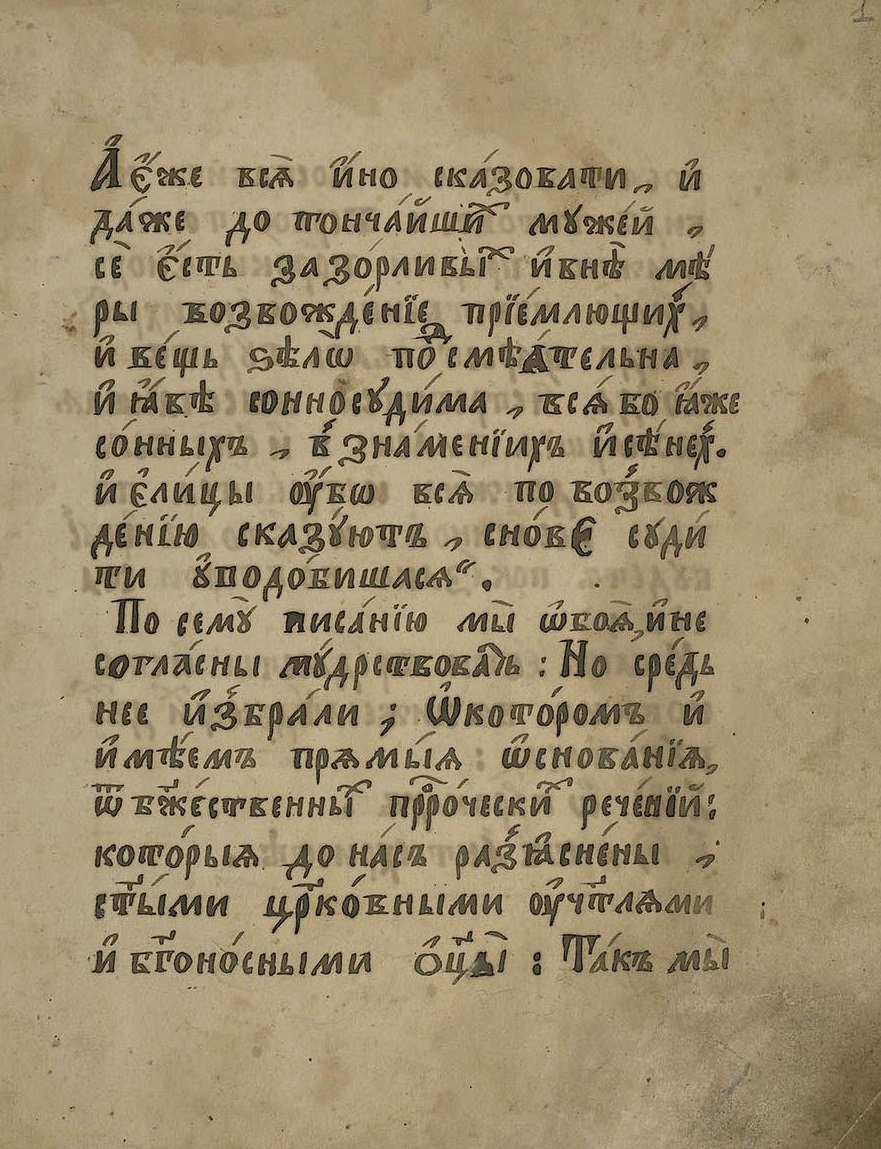 А҆ є҆́же всѧ̑ и҆́но сказова́ти, и҆
да́же до тонча́йшиⷯ муже́й,
се̑ є҆́сть зазо́рливыⷯ и҆внѣ̀ мѣ́
ры возвожде́нїе прїе́млющих,
и҆ ве́щь ѕѣлѡ̀ посмѣѧ́тельна,
и҆ ꙗ҆́вѣ сонносꙋди́ма, всѧ́ бо ꙗ҆́же
со́нныхъ, в̾знаме́нїихъ и҆сѣ́неⷯ.
и҆ є҆ли́цы ᲂу҆́бѡ всѧ̑ по возвож
де́нїю сказꙋ́ютъ, сно́вє сꙋди́
ти ᲂуподо́бишасѧ.
По семꙋ̀ писа́нїю мы̀ ѡ҆боѧ҆, и҆не
согла́сны мꙋ́дрствоваⷧь : Но сре́дь
нее и҆збра́ли ; Ѡ҆кото́ромъ и҆
и҆мѣ́емъ прѧмы́ѧ ѡ҆снова́нїѧ,
ѿ бж҃е́ственныⷯ прⷪ҇ро́ческиⷯ рече́нїй :
кото́рыѧ до на́съ раз̾ꙗ҆сне́ны ,
ст҃ы́ми цр҃ко́вными ᲂу҆чт҃лѧми
и҆ бг҃оно́сными ѻ҆ц҃ы̀ : Та́къ мы̀